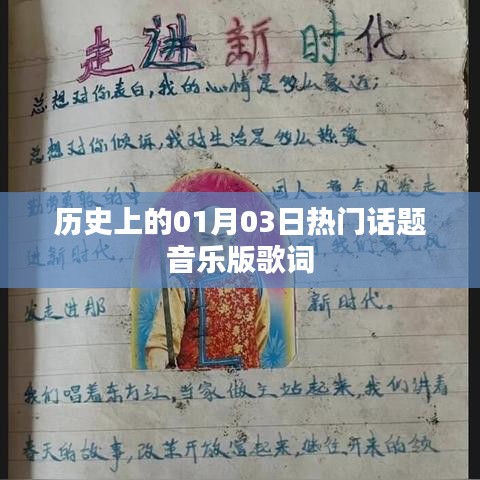 走进新时代
总想对你表白,我的心情是多么豪迈;
总想对你倾诉,我对生活是多么热爱
勤劳勇敢的中 国人,意气风发走
历史上的01月03日热门话题
音乐版歌词
进新时代. 我们意气风
发走进那 新时代.
我们唱着东方红,当家做主站起来,我们讲着
春天的故事,改革开放富起来,继往开来的领